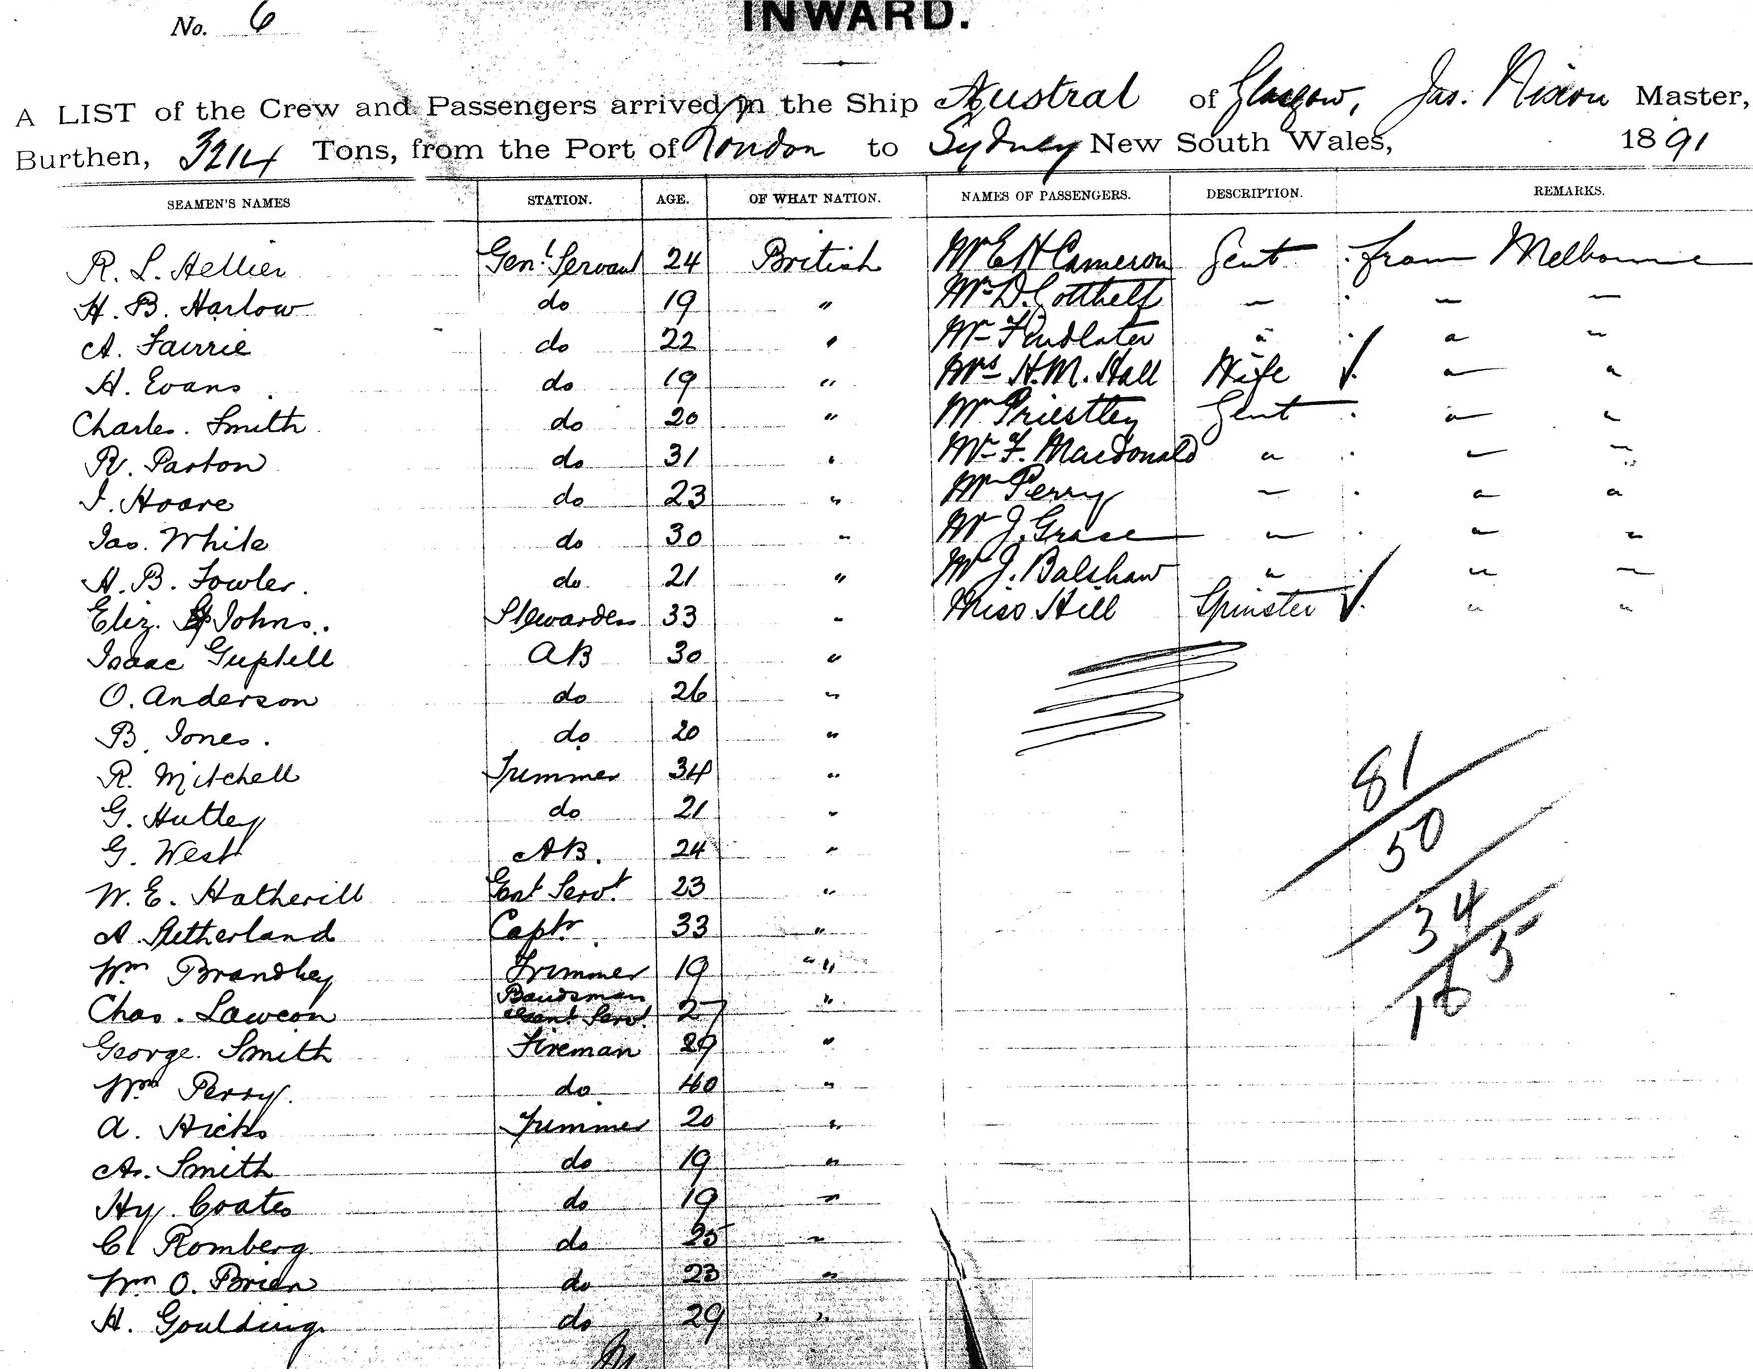 No. 6
INWARD.
A LIST of the Crew and Passengers arrived in the Ship Austral of Glasgow, Jas. Nixon Master,
Burthen, 3214 Tons, from the Port of London to Sydney New South Wales, 1891
SEAMEN'S NAMES STATION. AGE. OF WHAT NATION. NAMES OF PASSENGERS. DESCRIPTION. REMARKS.
R. L. Hellier Genl Servant 24 British Mr E H Cameron Gent from Melbourne
H. B. Harlow do 19 " Mr D. Gotthelf " " "
A. Fairrie do 22 " Mr Findlater " " "
H. Evans do 19 " Mrs H. M. Hall Wife " "
Charles. Smith do 20 " Mr Priestley Gent " "
R. Parton do 31 " Mr F. Macdonald " " "
J. Hoare do 23 " Mr Perry " " "
Jas. White do 30 " Mr J. Grase " " "
H. B. Fowler. do 21 " Mr J. Balshaw " " "
Eliz. Johns. Stewardess 33 " Miss Hill Spinster " "
Isaac Guptell AB 30 "
O. Anderson do 26 "
B. Jones. do 20 "
R. Mitchell Trimmer 34 "
G. Hutley do 21 "
G. West AB. 24 "
W. E. Hatherill Genl Servt. 23 "
A. Sutherland Captn. 33 "
Wm Brandley Trimmer 19 "
Chas. Lawson Bandsman Genl Servt. 27 "
George. Smith Fireman 29 "
Wm Perry. do. 40 "
A. Hicks Trimmer 20 "
A. Smith do 19 "
Hy. Coates do 19 "
C. Romberg do 25 "
Wm O. Brien do 23 "
H. Goulding do 29 "
81
50
34
16 5